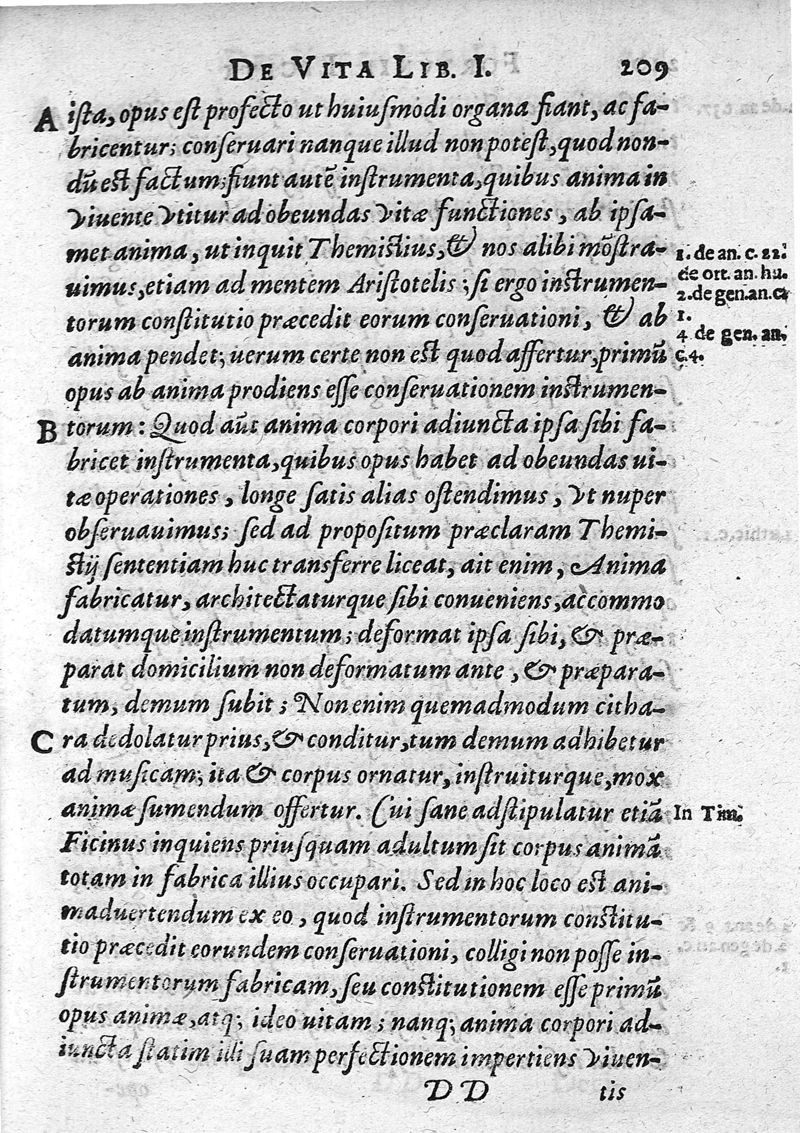 DE VITA LIB. I. 209
A ista, opus est profecto ut huiusmodi organa fiant, ac fa-
bricentur; conseruari nanque illud non potest, quod non-
dũ est factum; fiunt autẽ instrumenta, quibus anima in
viuente vtitur ad obeundas vitæ functiones, ab ipsa-
met anima, ut inquit Themistius, & nos alibi mõstra- 1. de an. c. 22.
uimus, etiam ad mentem Aristotelis; si ergo instrumen- de ort. an. hu.
2. de gen. an. c.
torum constitutio præcedit eorum conseruationi, & ab 1.
4 de gen. an.
anima pendet; uerum certe non est quod affertur, primũ c. 4.
opus ab anima prodiens esse conseruationem instrumen-
B torum: Quod aũt anima corpori adiuncta ipsa sibi fa-
bricet instrumenta, quibus opus habet ad obeundas ui-
tæ operationes, longe satis alias ostendimus, vt nuper
obseruauimus; sed ad propositum præclaram Themi-
stij sententiam huc transferre liceat, ait enim, Anima
fabricatur, architectaturque sibi conueniens, accommo
datumque instrumentum; deformat ipsa sibi, & præ-
parat domicilium non deformatum ante, & præpara-
tum, demum subit; Non enim quemadmodum citha-
C ra dedolatur prius, & conditur, tum demum adhibetur
ad musicam; ita & corpus ornatur, instruiturque, mox
animæ sumendum offertur. Cui sane adstipulatur etiã In Tim.
Ficinus inquiens priusquam adultum sit corpus animã
totam in fabrica illius occupari. Sed in hoc loco est ani-
maduertendum ex eo, quod instrumentorum constitu-
tio præcedit eorundem conseruationi, colligi non posse in-
strumentorum fabricam, seu constitutionem esse primũ
opus animæ, atq; ideo uitam; nanq; anima corpori ad-
iuncta statim illi suam perfectionem impertiens viuen-
DD tis